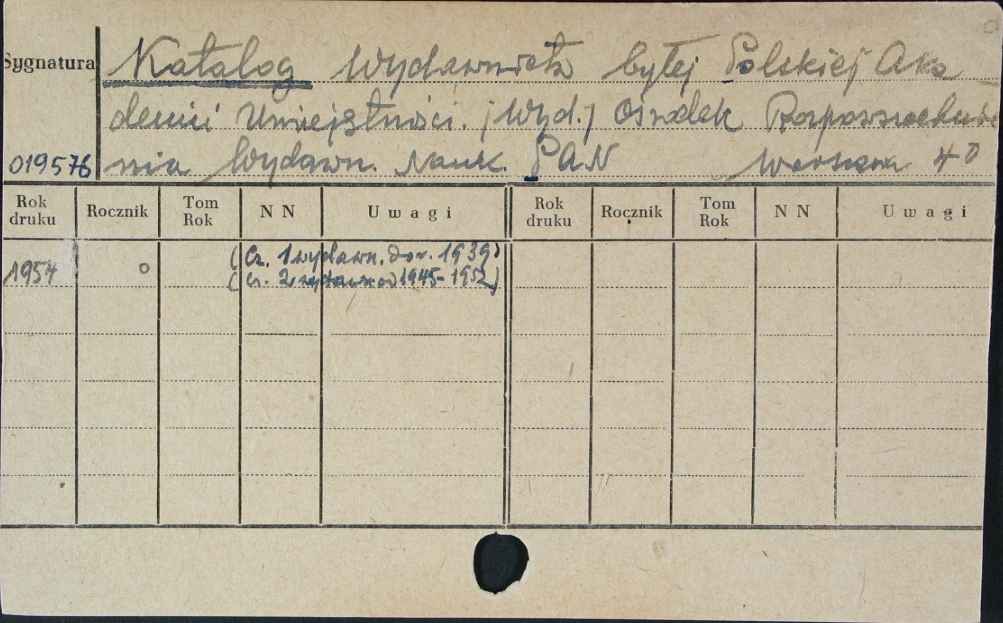 Sygnatura
Katalog Wydawnictw byłej Polskiej Aka
demii Umiejętności. [Wyd.] Ośrodek Rozpowszechnia
019576 nia Wydawn. Nauk. PAN Warszawa 4°
Rok druku Rocznik Tom Rok N N Uwagi Rok druku Rocznik Tom Rok N N Uwagi
(Cz. 1 wydawn. do r. 1939)
1954 o (Cz. 2 wydawn. od 1945-1952)